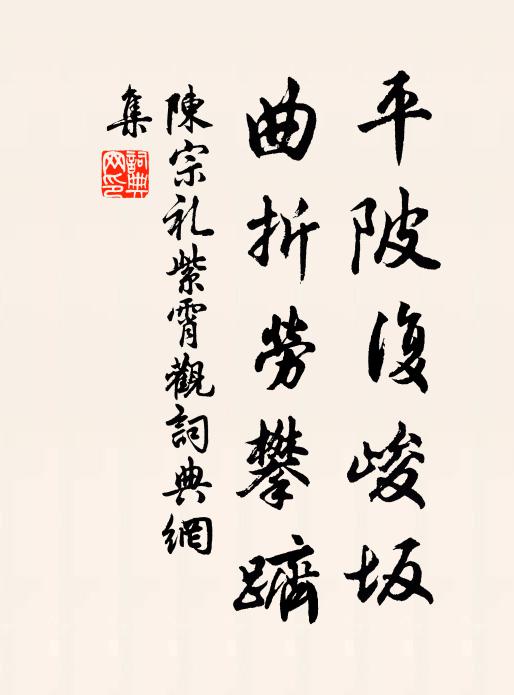 平陂復峻坂
曲折勞攀躋
陳宗礼紫霄觀詞典網
集
詞典
网印